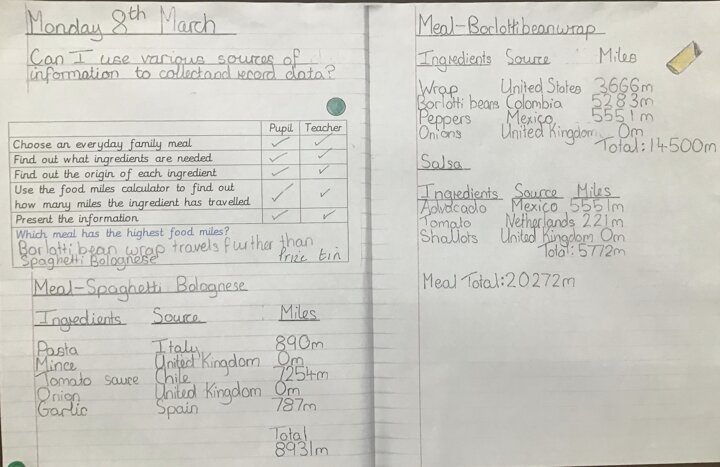 Monday 8th March
Can I use various sources of
information to collect and record data?
Pupil Teacher
Choose an everyday family meal
Find out what ingredients are needed
Find out the origin of each ingredient
Use the food miles calculator to find out
how many miles the ingredient has travelled
Present the information
Which meal has the highest food miles?
Borlotti bean wrap travels further than
Spaghetti Bolognese
Meal-Spaghetti Bolognese
Ingredients Source Miles
Pasta Italy 890m
Mince United Kingdom 0m
Tomato sauce Chile 7254m
Onion United Kingdom 0m
Garlic Spain 787m
Total
8931m
Meal-Borlotti bean wrap
Ingredients Source Miles
Wrap United States 3666m
Borlotti beans Colombia 5283m
Peppers Mexico 5551m
Onions United Kingdom 0m
Total:14500m
Salsa
Ingredients Source Miles
Advocado Mexico 5551m
Tomato Netherlands 221m
Shallots United Kingdom 0m
Total:5772m
Meal Total:20272m